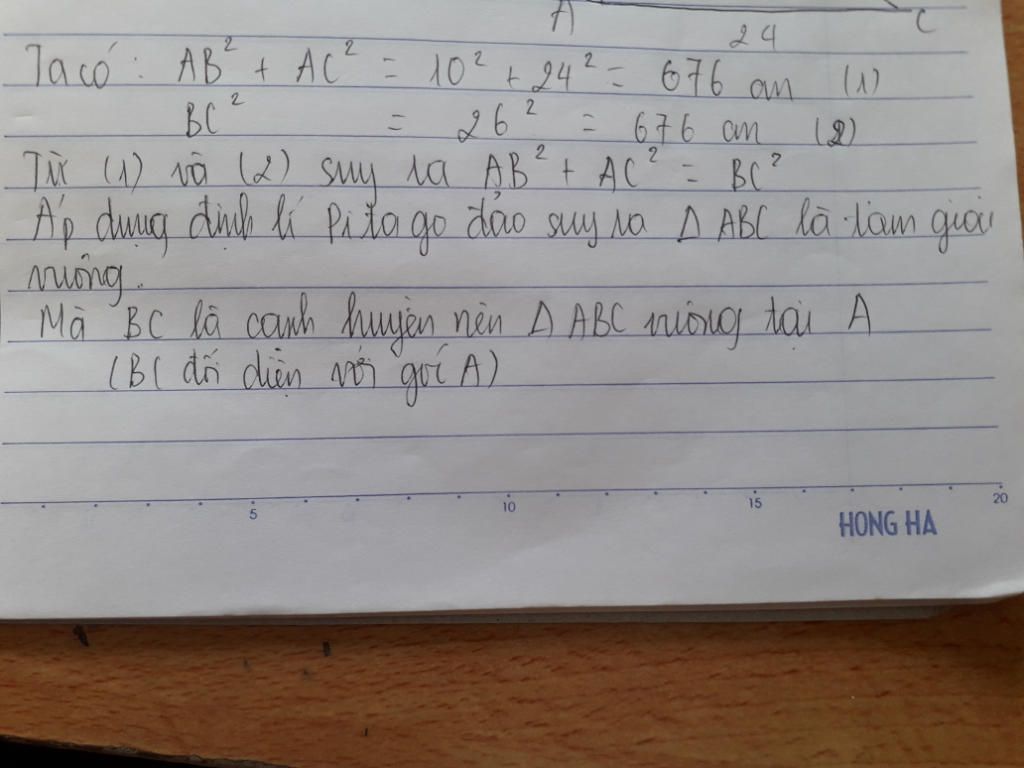 A 24 C
Ta có: AB² + AC² = 10² + 24² = 676 cm (1)
BC² = 26² = 676 cm (2)
Từ (1) và (2) suy ra AB² + AC² = BC²
Áp dụng định lí Pitago đảo suy ra Δ ABC là tam giác
vuông.
Mà BC là cạnh huyền nên Δ ABC vuông tại A
(BC đối diện với góc A)
5 10 15 20
HONG HA